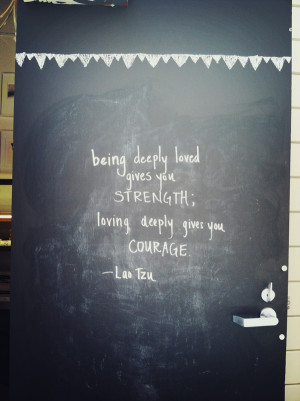 being deeply loved
gives you
STRENGTH;
loving deeply gives you
COURAGE.
—Lao Tzu